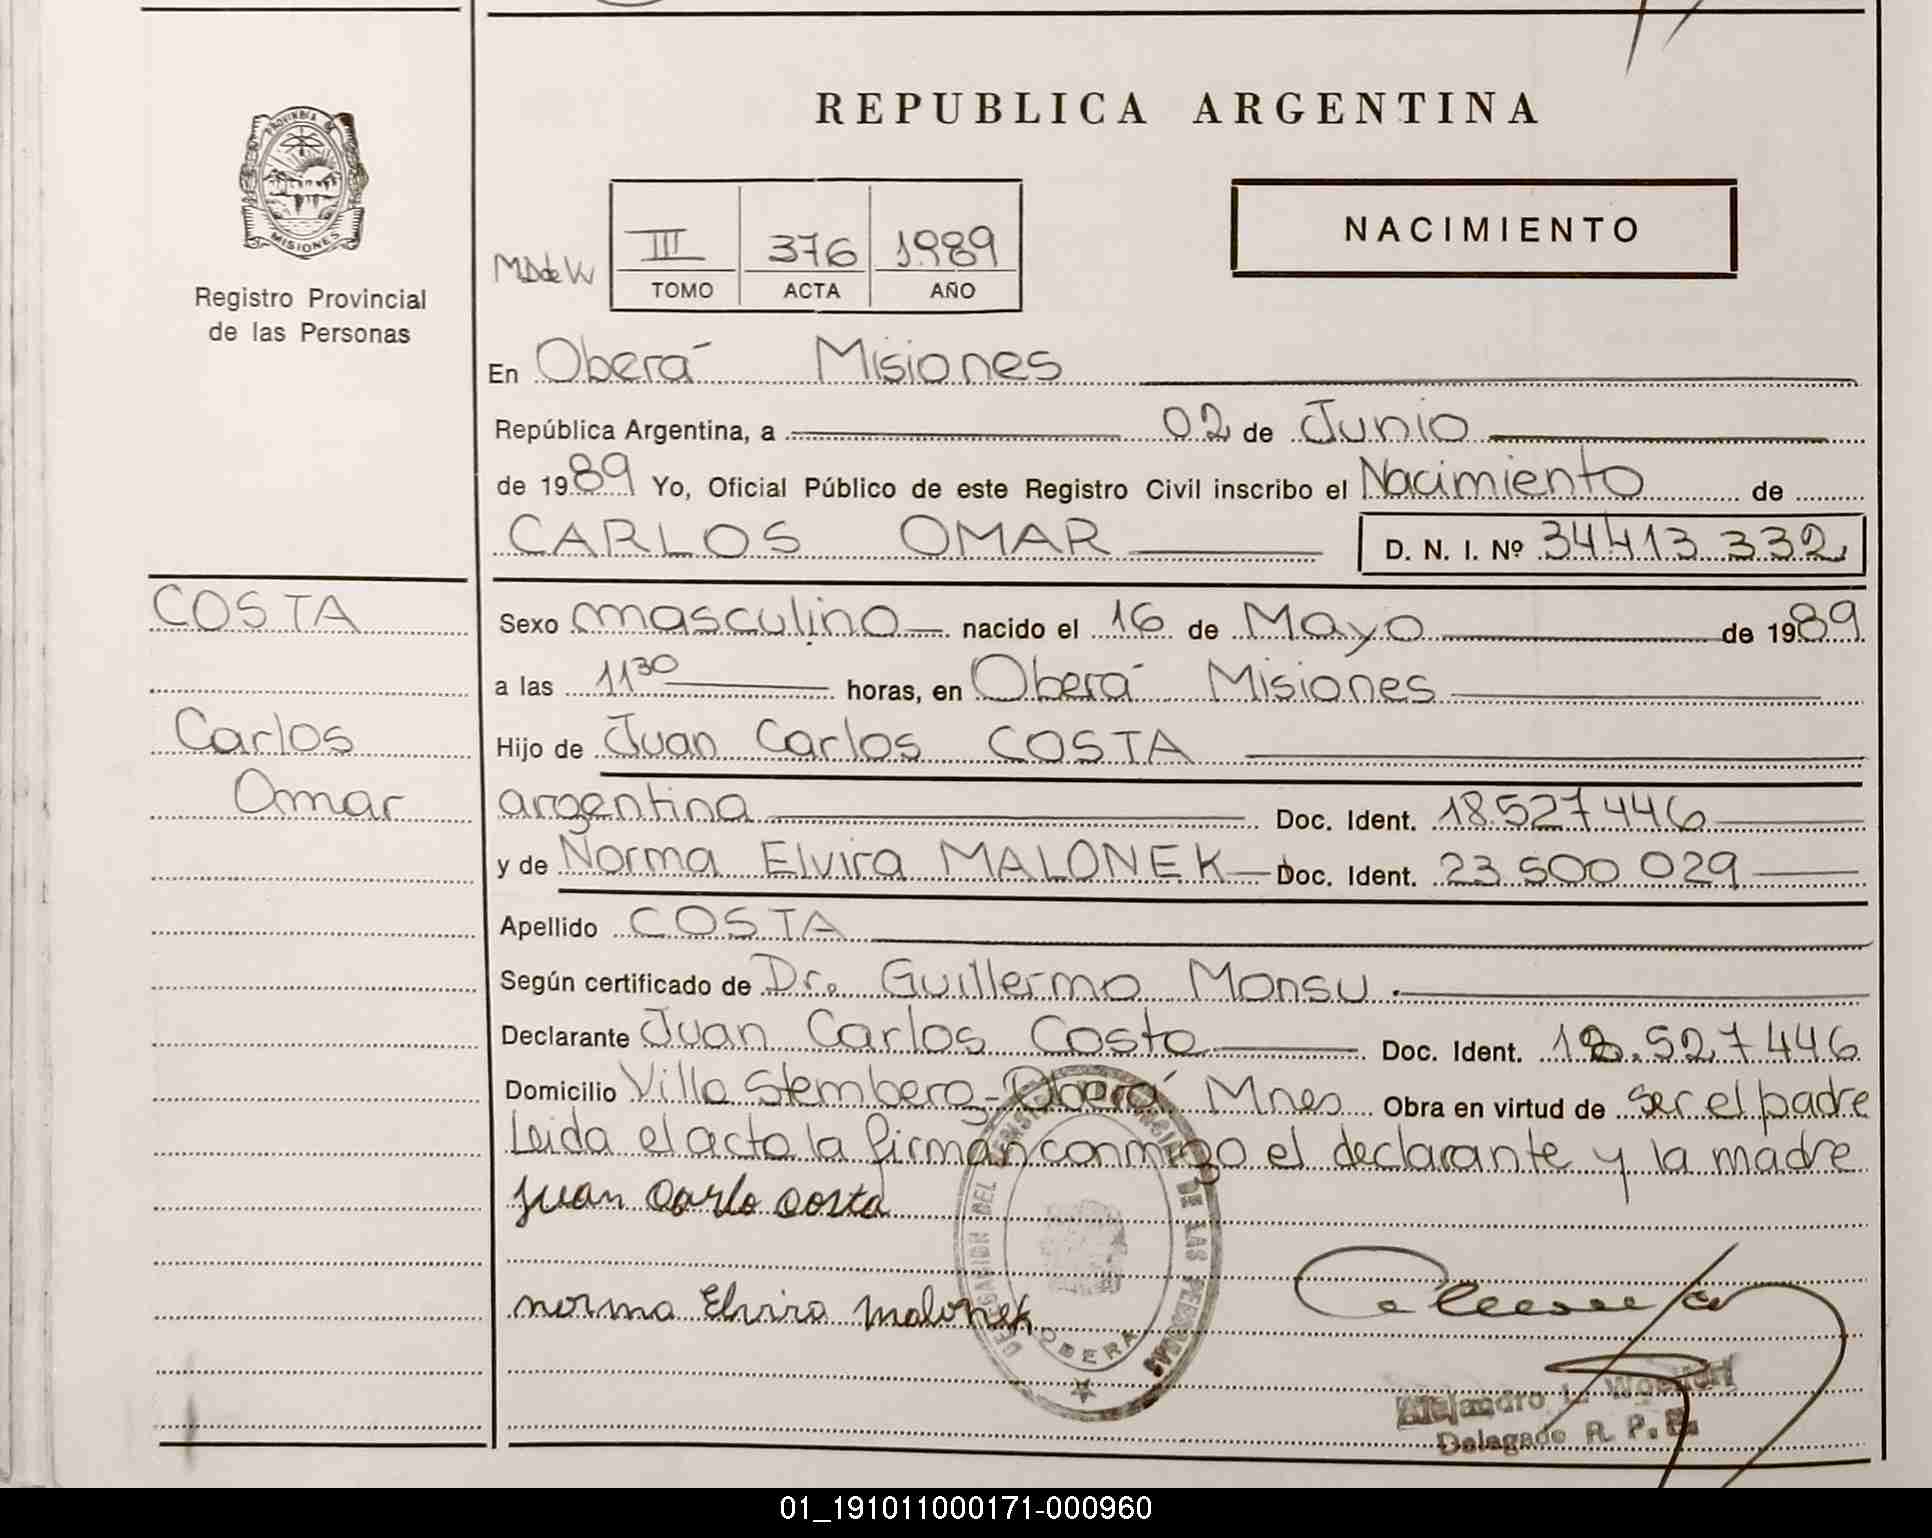 REPUBLICA ARGENTINA
PROVINCIA DE
MISIONES
Registro Provincial
de las Personas
NACIMIENTO
III 376 1989
TOMO ACTA AÑO
En Oberá Misiones
República Argentina, a 02 de Junio
de 1989 Yo, Oficial Público de este Registro Civil inscribo el Nacimiento de
CARLOS OMAR D. N. I. Nº 34413332
COSTA
Carlos
Omar
Sexo masculino nacido el 16 de Mayo de 1989
a las 11³⁰ horas, en Oberá Misiones
Hijo de Juan Carlos COSTA
argentina Doc. Ident. 18.527446
y de Norma Elvira MALONEK Doc. Ident. 23 500 029
Apellido COSTA
Según certificado de Dr. Guillermo Monsu.
Declarante Juan Carlos Costa Doc. Ident. 18.527446
Domicilio Villa Stemberg-Oberá Mnes Obra en virtud de ser el padre
Leida el acta la firman conmigo el declarante y la madre
Juan Carlo Costa
norma Elvira malonek
DELEGACION DEL REGISTRO PROVINCIAL DE LAS PERSONAS
OBERA
Alejandro L.
Delegado R. P. P.
01_191011000171-000960